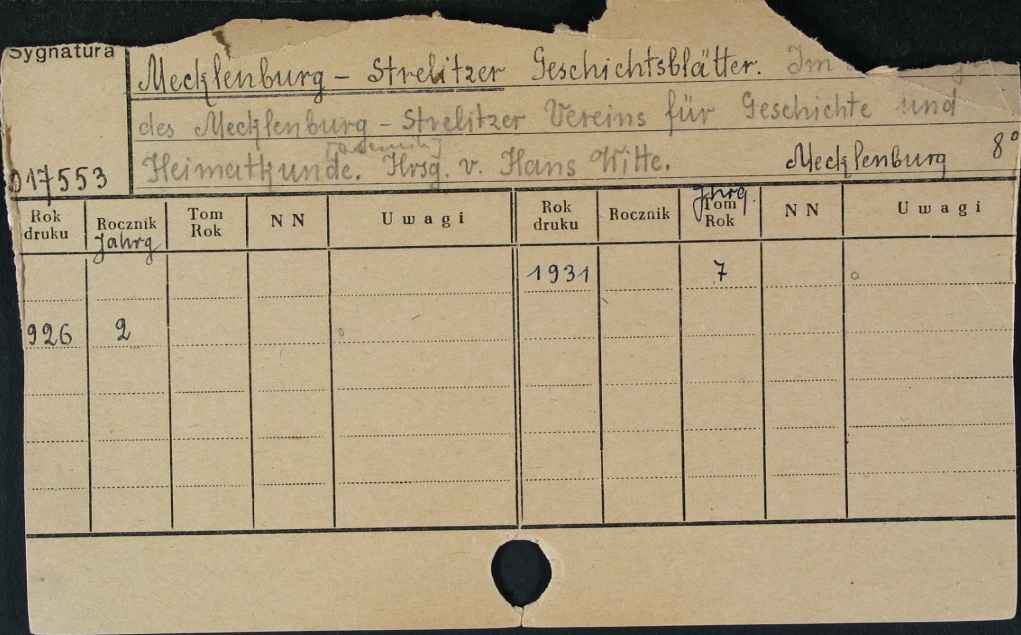 Sygnatura
Mecklenburg - Strelitzer Geschichtsblätter. Im
des Mecklenburg - Strelitzer Vereins für Geschichte und
Heimatkunde. Hrsg. v. Hans Witte. Mecklenburg 8°
017553
Rok druku Rocznik Jahrg Tom Rok N N Uwagi Rok druku Rocznik Jhrg. Tom Rok N N Uwagi
1931 7
926 2